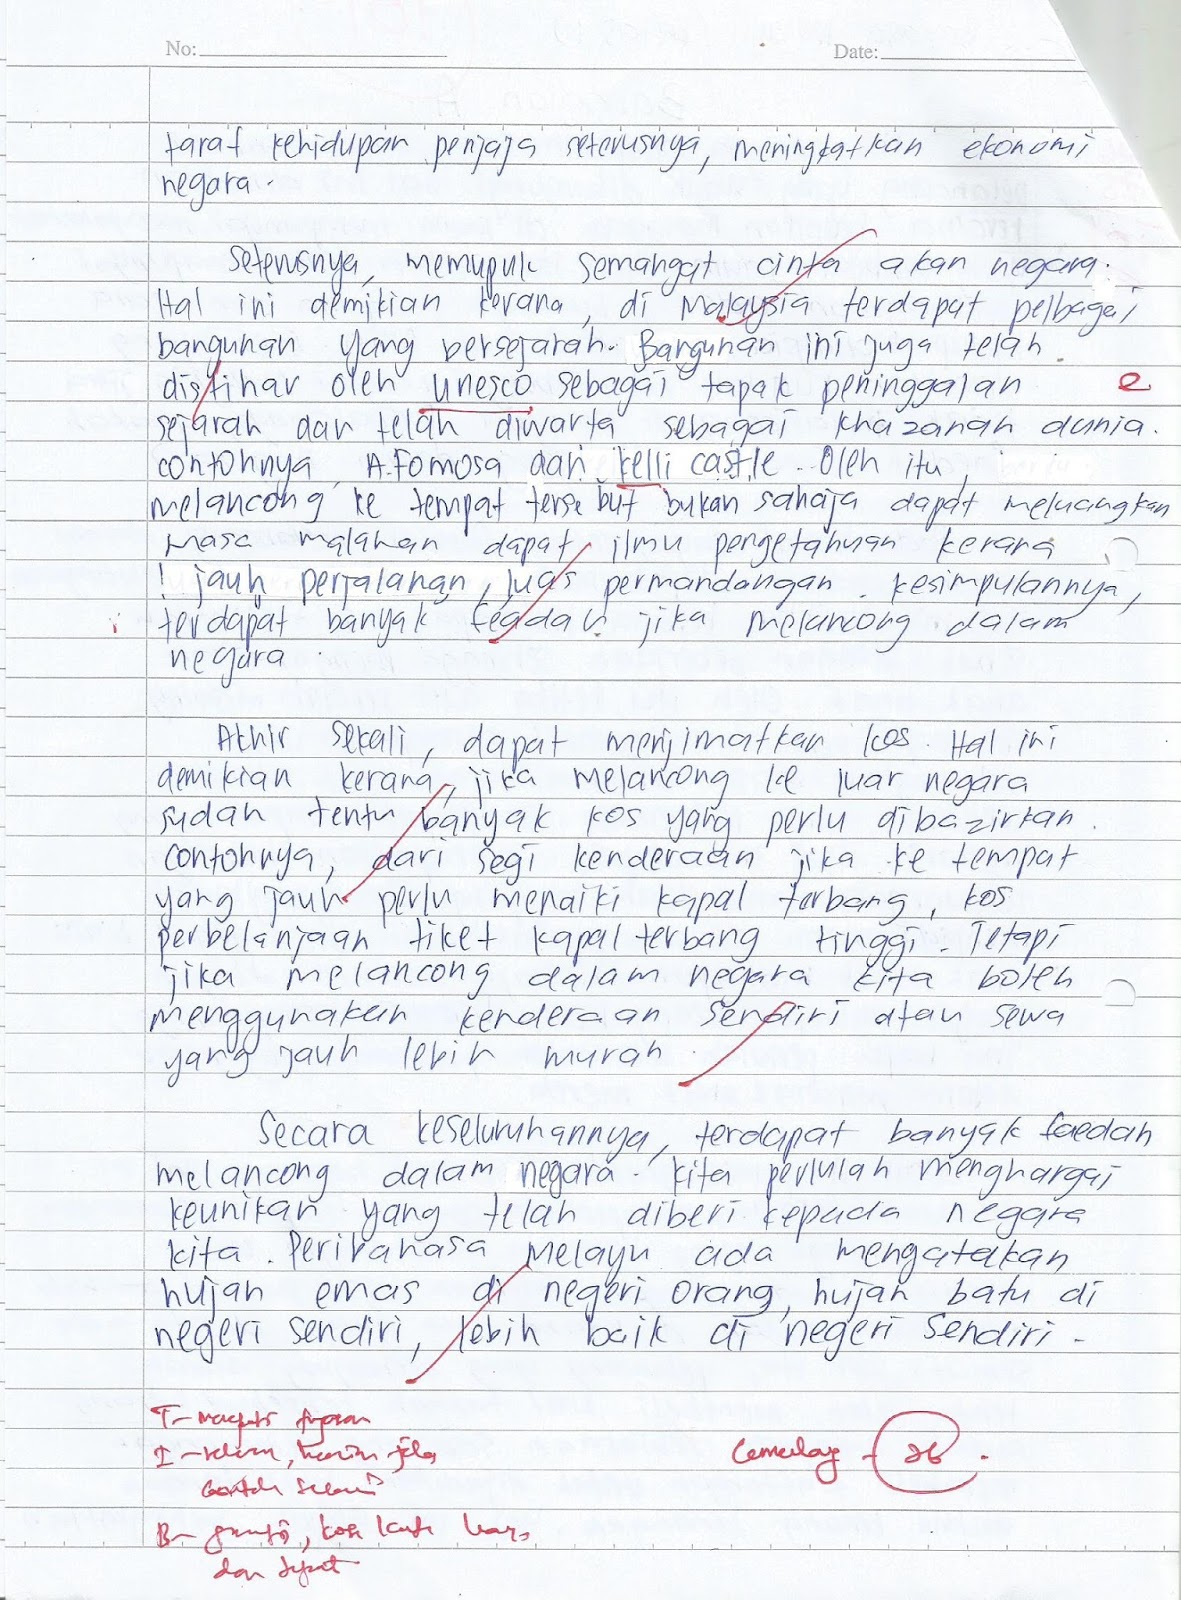 No:
Date:
taraf kehidupan penjaja seterusnya, meningkatkan ekonomi
negara.
Seterusnya, memupuk semangat cinta akan negara.
Hal ini demikian kerana, di Malaysia terdapat pelbagai
bangunan yang bersejarah. Bangunan ini juga telah
disitihar oleh unesco sebagai tapak peninggalan
e
sejarah dan telah diwarta sebagai khazanah dunia.
contohnya, A.Fomosa dan kelli castle. Oleh itu,
melancong ke tempat tersebut bukan sahaja dapat meluangkan
masa malahan dapat ilmu pengetahuan kerana
! jauh perjalanan, luas permandangan. kesimpulannya,
i
terdapat banyak feadah jika melancong dalam
negara.
Akhir sekali, dapat menjimatkan kos. Hal ini
demikian kerana, jika melancong ke luar negara
sudah tentu banyak kos yang perlu dibazirkan.
contohnya, dari segi kenderaan jika ke tempat
yang jauh perlu menaiki kapal terbang, kos
perbelanjaan tiket kapal terbang tinggi. Tetapi
jika melancong dalam negara kita boleh
menggunakan kenderaan sendiri atau sewa
yang jauh lebih murah.
Secara keseluruhannya, terdapat banyak faedah
melancong dalam negara. kita perlulah menghargai
keunikan yang telah diberi kepada negara
kita. Peribahasa Melayu ada mengatakan
hujan emas di negeri orang, hujan batu di
negeri sendiri, lebih baik di negeri sendiri.
T- menepati
I - relevan, huraian jelas
contoh sesuai
Cemerlang - 26.
B-
dan tepat